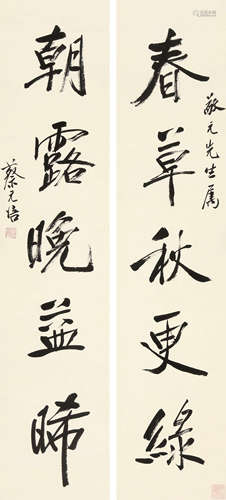 敬元先生属
春草秋更綠
朝露晚並晞
蔡元培